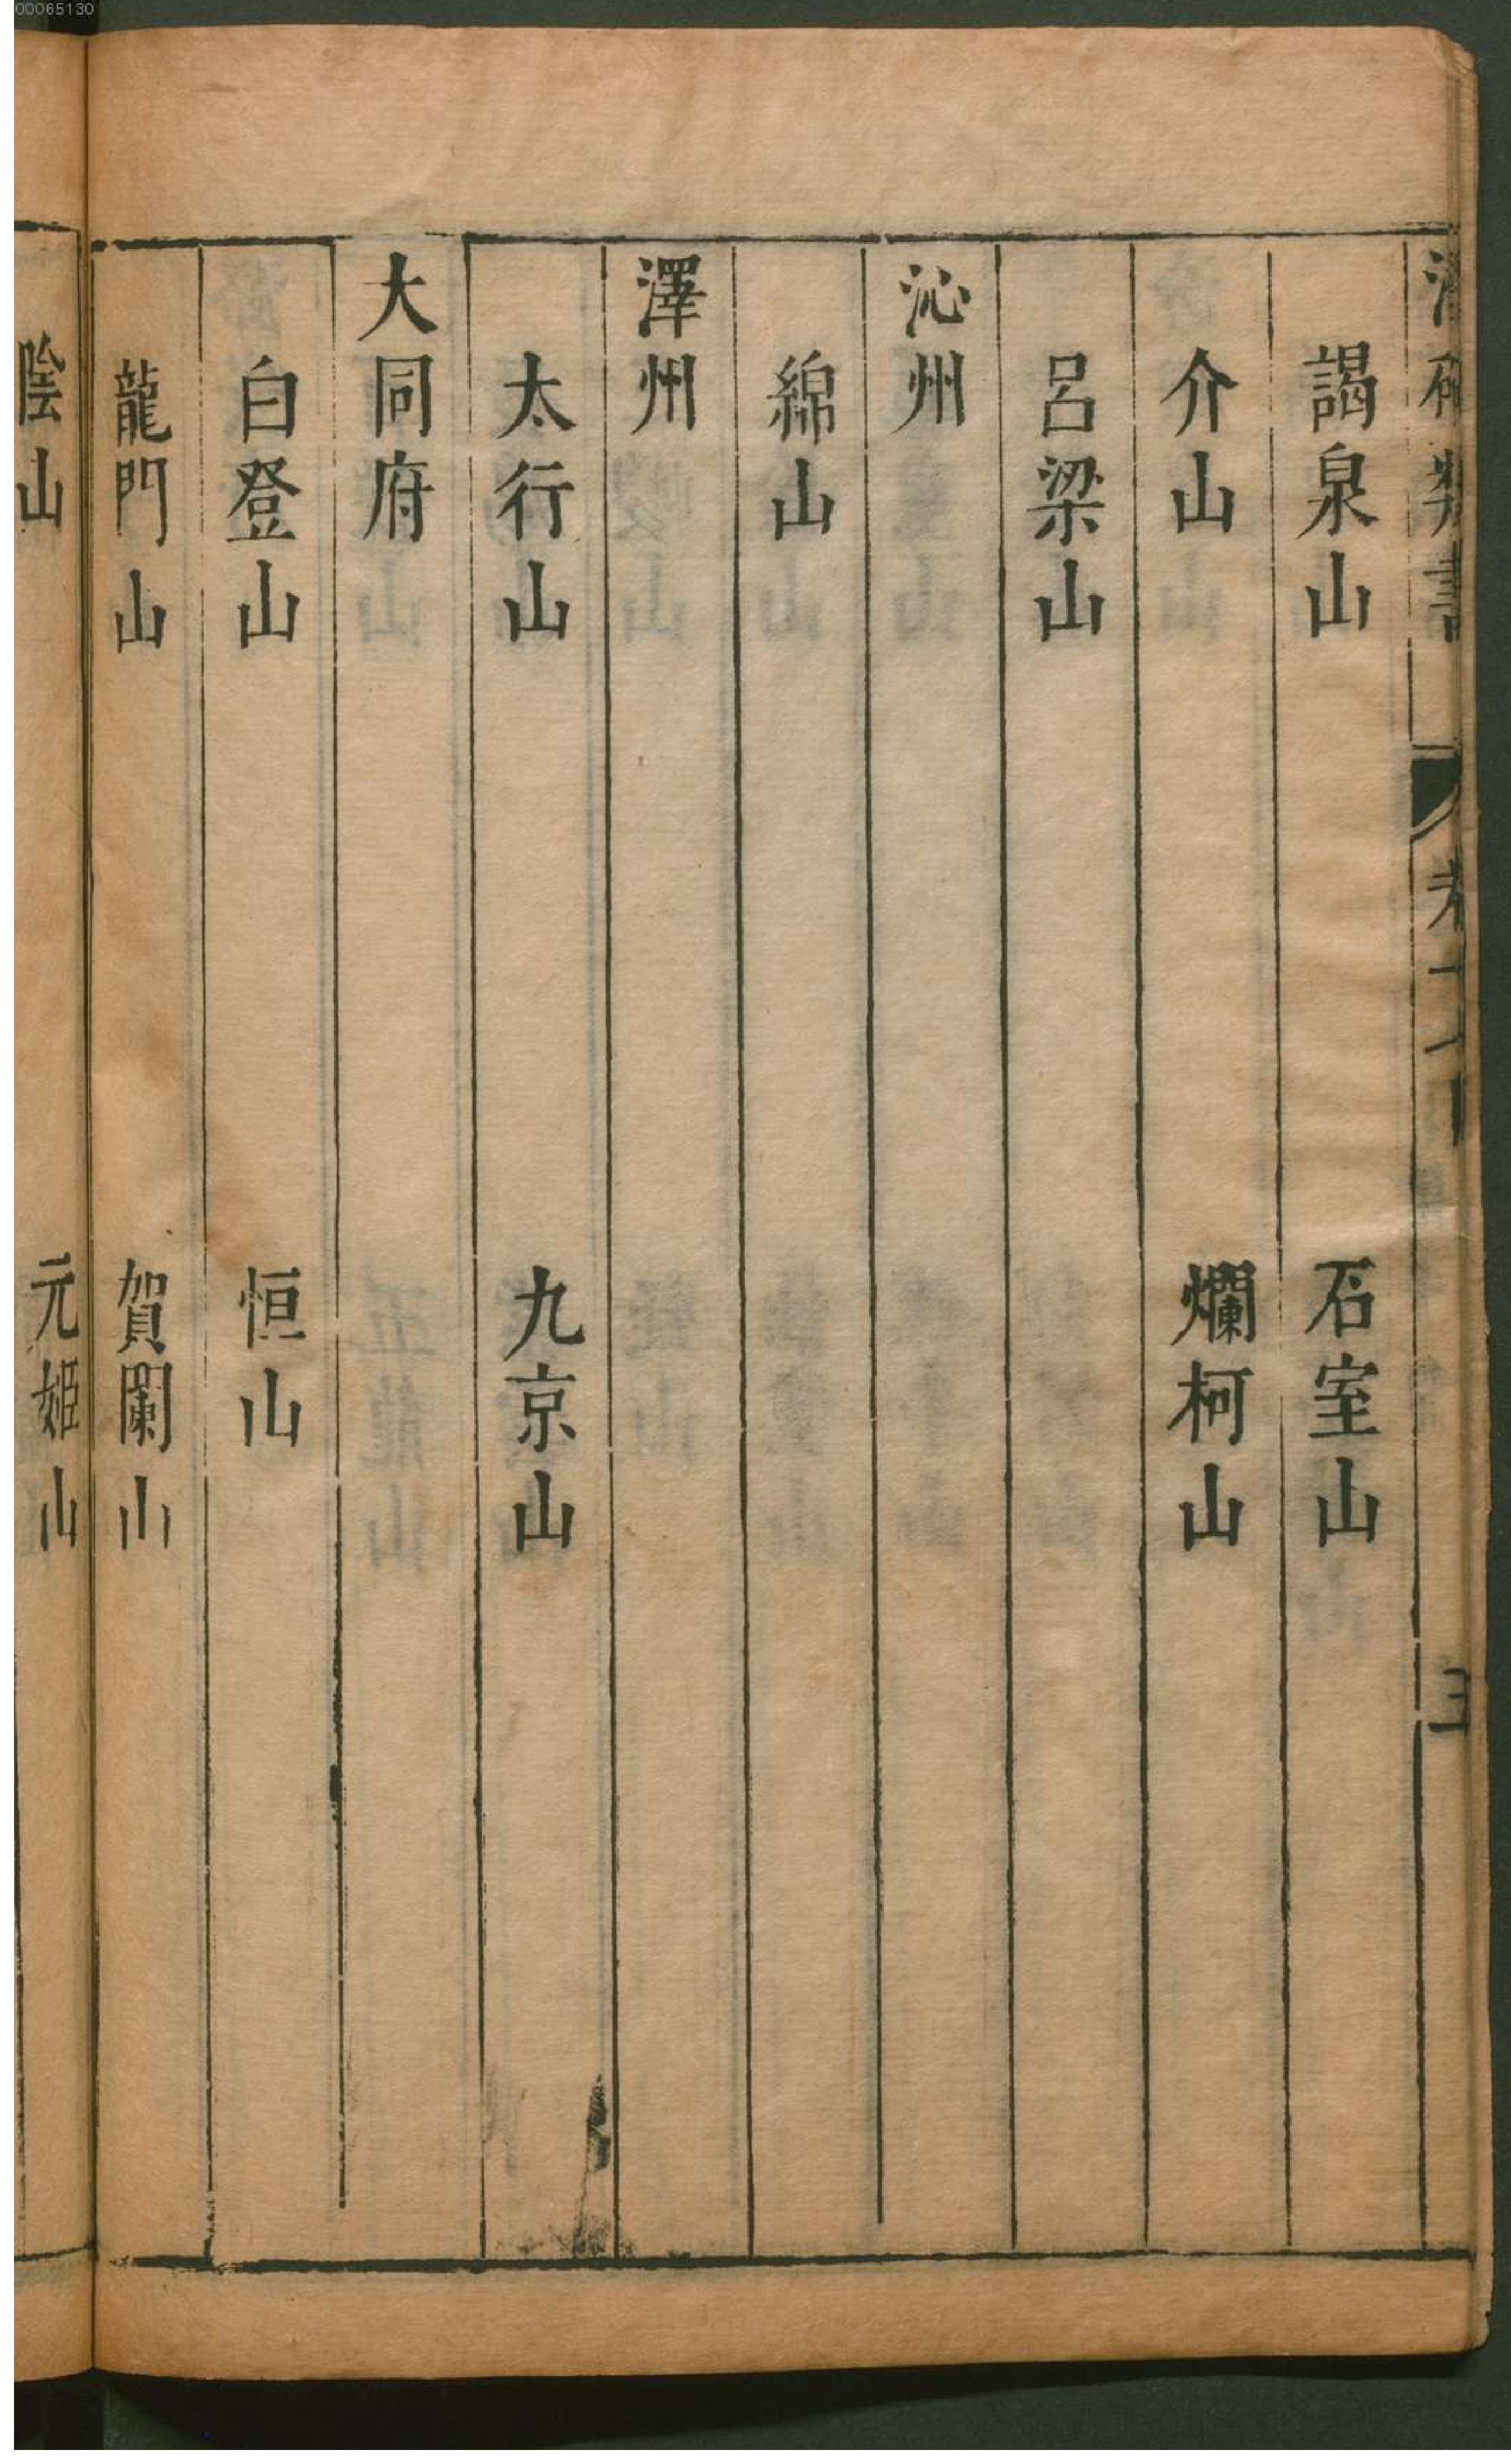 00065130
謁泉山 石室山
介山 爛柯山
呂梁山
沁州
綿山
澤州
太行山 九京山
大同府
白登山 恒山
龍門山 賀闌山
陰山 元姬山